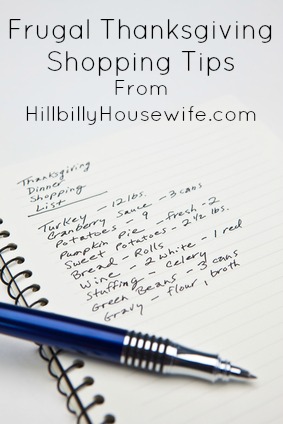 Frugal Thanksgiving
Shopping Tips
From
HillbillyHousewife.com
Thanksgiving
Dinner
Shopping
List
Turkey - 12 lbs.
Cranberry Sauce - 3 cans
Potatoes - 9
Pumpkin Pie - fresh - 2
Sweet Potatoes - 2 1/2 lbs.
Bread - Rolls
Wine - 2 white - 1 red
Stuffing - celery
Green Beans - 3 cans
Gravy - flour, broth